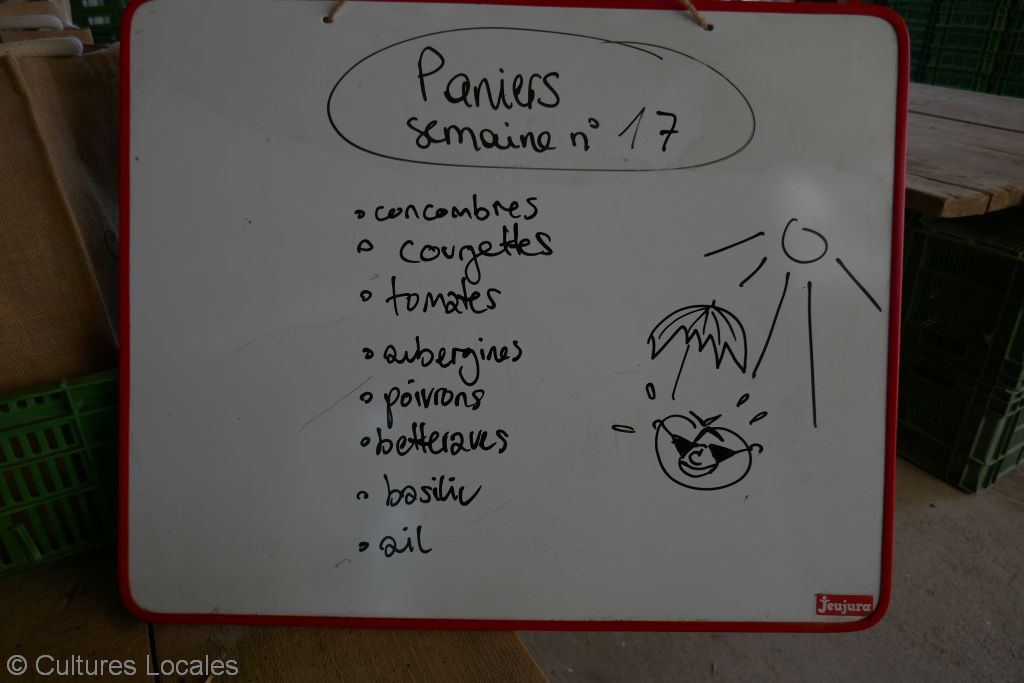 Paniers
semaine n° 17
• concombres
• courgettes
• tomates
• aubergines
• poivrons
• betteraves
• basilic
• ail
Jeujura
© Cultures Locales